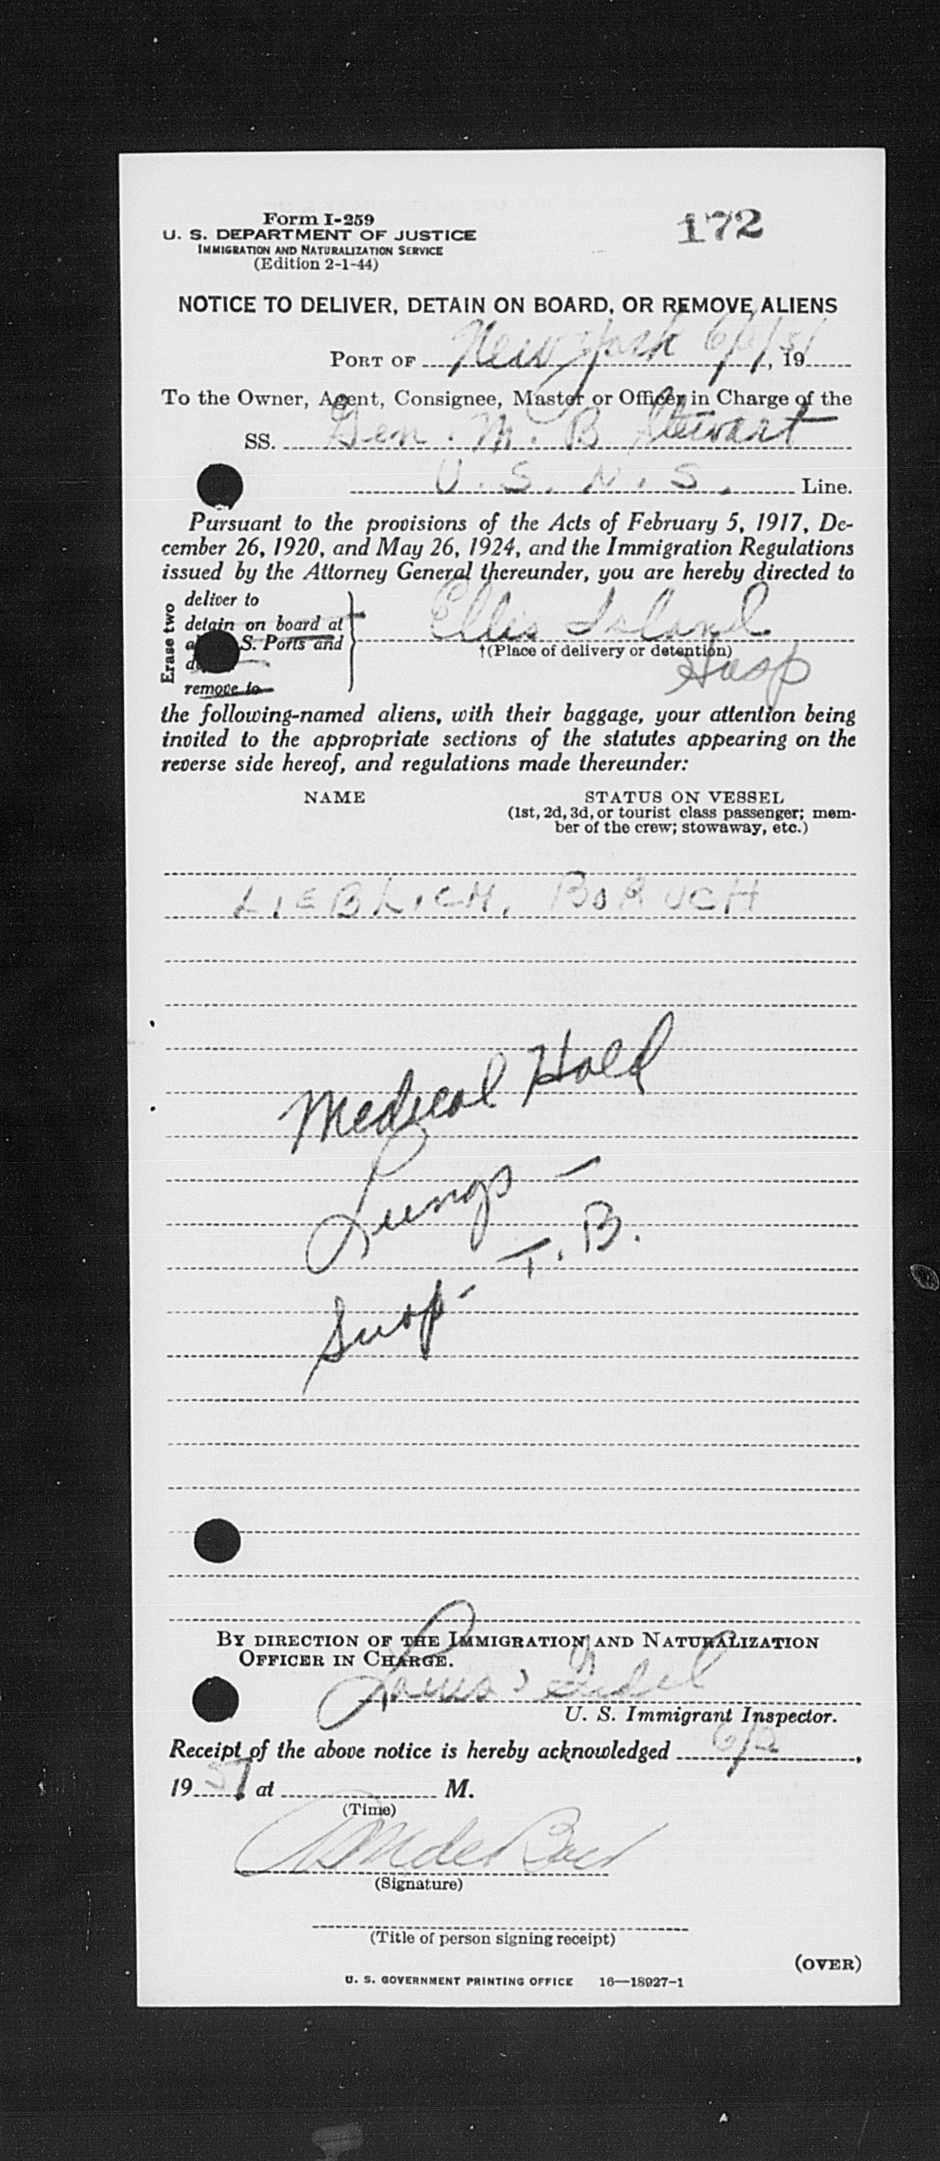 Form I-259
172
U. S. DEPARTMENT OF JUSTICE
IMMIGRATION AND NATURALIZATION SERVICE
(Edition 2-1-44)
NOTICE TO DELIVER, DETAIN ON BOARD, OR REMOVE ALIENS
PORT OF New York 6/6/51, 19
To the Owner, Agent, Consignee, Master or Officer in Charge of the
SS. Gen. M. B Stewart
U. S. N. S. Line.
Pursuant to the provisions of the Acts of February 5, 1917, De-
cember 26, 1920, and May 26, 1924, and the Immigration Regulations
issued by the Attorney General thereunder, you are hereby directed to
Erase two
deliver to
detain on board at
S. Ports and
remove to
Ellis Island
†(Place of delivery or detention)
Hosp
the following-named aliens, with their baggage, your attention being
invited to the appropriate sections of the statutes appearing on the
reverse side hereof, and regulations made thereunder:
NAME STATUS ON VESSEL
(1st, 2d, 3d, or tourist class passenger; mem-
ber of the crew; stowaway, etc.)
LIEBLICH, BORUCH
Medical Hold
Lungs -
Susp - T. B.
BY DIRECTION OF THE IMMIGRATION AND NATURALIZATION
OFFICER IN CHARGE.
Louis
U. S. Immigrant Inspector.
Receipt of the above notice is hereby acknowledged ,
19 51, at M.
(Time)
(Signature)
(Title of person signing receipt)
(OVER)
U. S. GOVERNMENT PRINTING OFFICE 16—18927-1